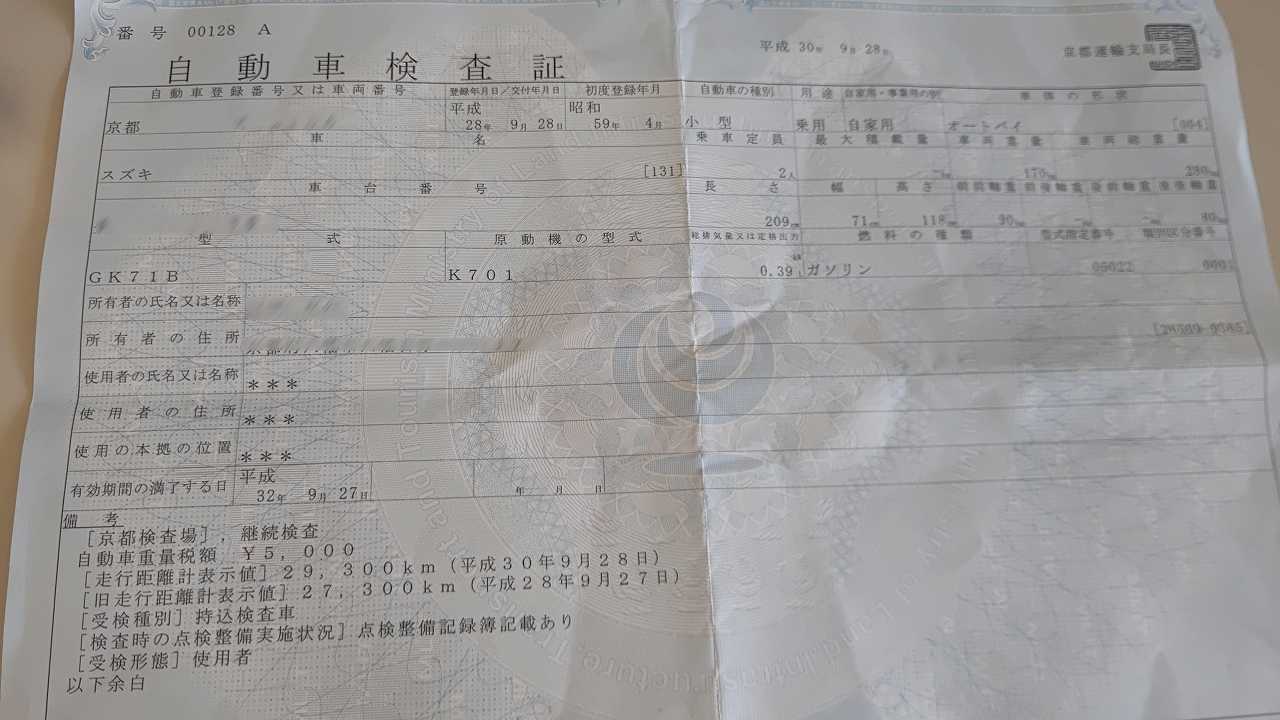 番号 00128 A
平成 30年 9月 28日
京都運輸支局長
自動車検査証
自動車登録番号又は車両番号 登録年月日/交付年月日 初度登録年月 自動車の種別 用途 自家用・事業用の別 車体の形状
京都 平成 28年 9月 28日 昭和 59年 4月 小型 乗用 自家用 オートバイ
車名 乗車定員 最大積載量 車両重量 車両総重量
スズキ [131] 2人 -kg 170kg 280kg
車台番号 長さ 幅 高さ 前前軸重 前後軸重 後前軸重 後後軸重
209cm 71cm 118cm 90kg -kg -kg 80kg
型式 原動機の型式 総排気量又は定格出力 燃料の種類 型式指定番号 類別区分番号
GK71B K701 0.39 ガソリン
所有者の氏名又は名称
所有者の住所
使用者の氏名又は名称 ***
使用者の住所 ***
使用の本拠の位置 ***
有効期間の満了する日 平成 32年 9月 27日 年 月 日
備考
[京都検査場], 継続検査
自動車重量税額 ¥5,000
[走行距離計表示値]29,300km(平成30年9月28日)
[旧走行距離計表示値]27,300km(平成28年9月27日)
[受検種別]持込検査車
[検査時の点検整備実施状況]点検整備記録簿記載あり
[受検形態]使用者
以下余白